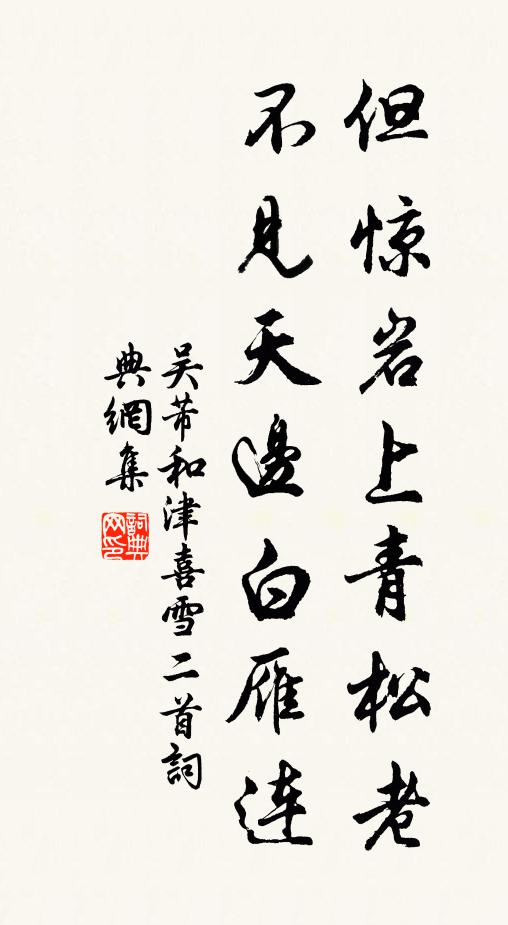 但惊岩上青松老
不见天邊白雁连
吴芾和津喜雪二首詞
典網集
詞典
网印